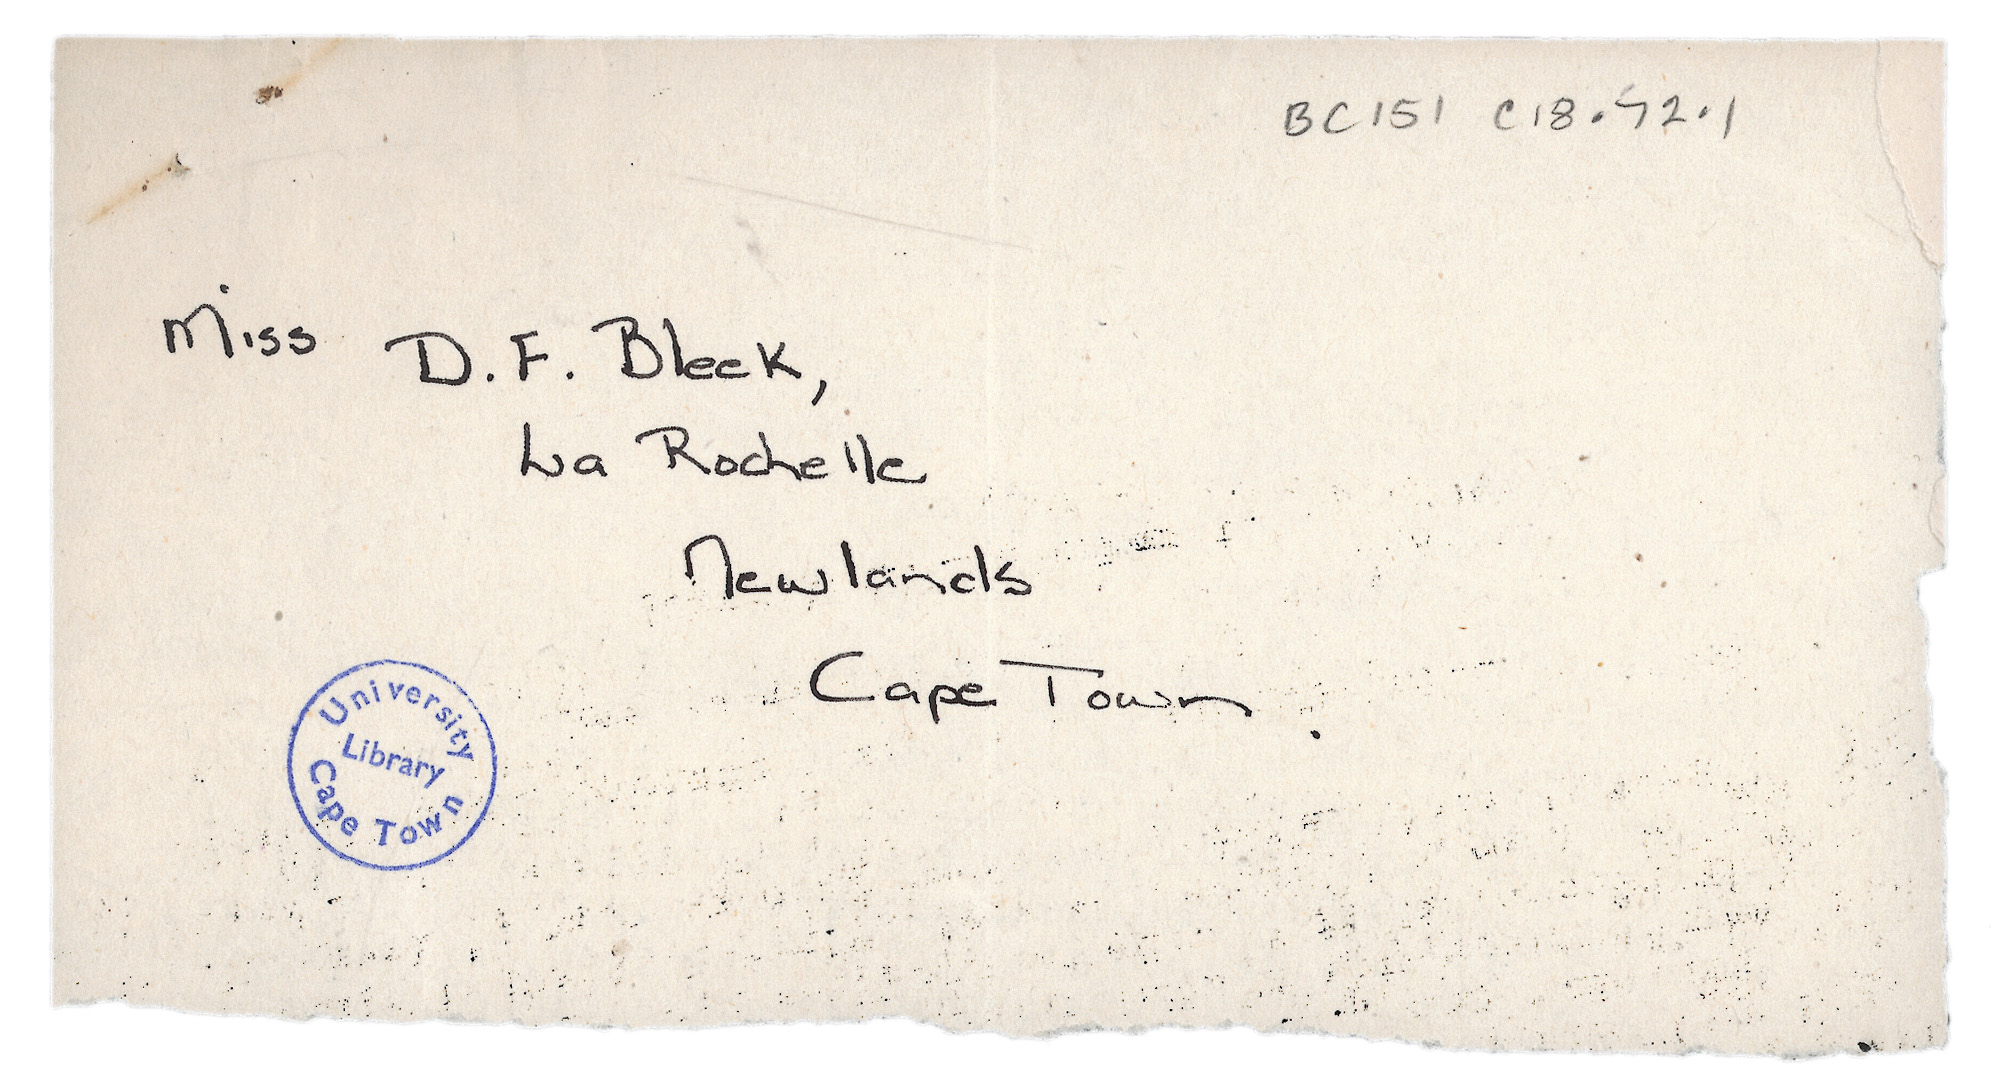 BC151 C18.42.1
Miss D. F. Bleek,
La Rochelle
Newlands
Cape Town.
University
Library
Cape Town